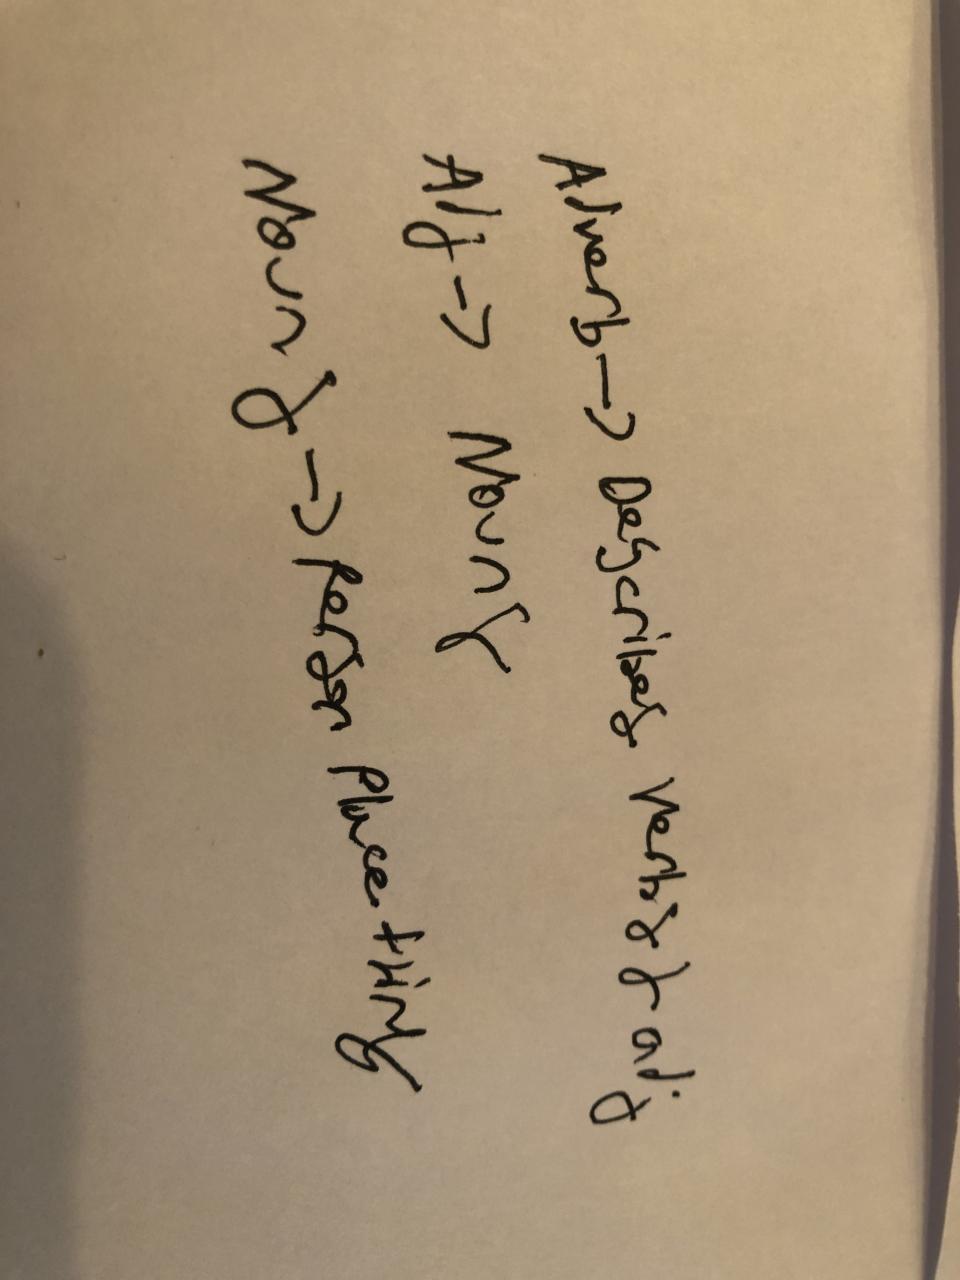 Adverb -> Describes Verbs & adj
Adj -> Nouns
Nouns -> Person Place thing